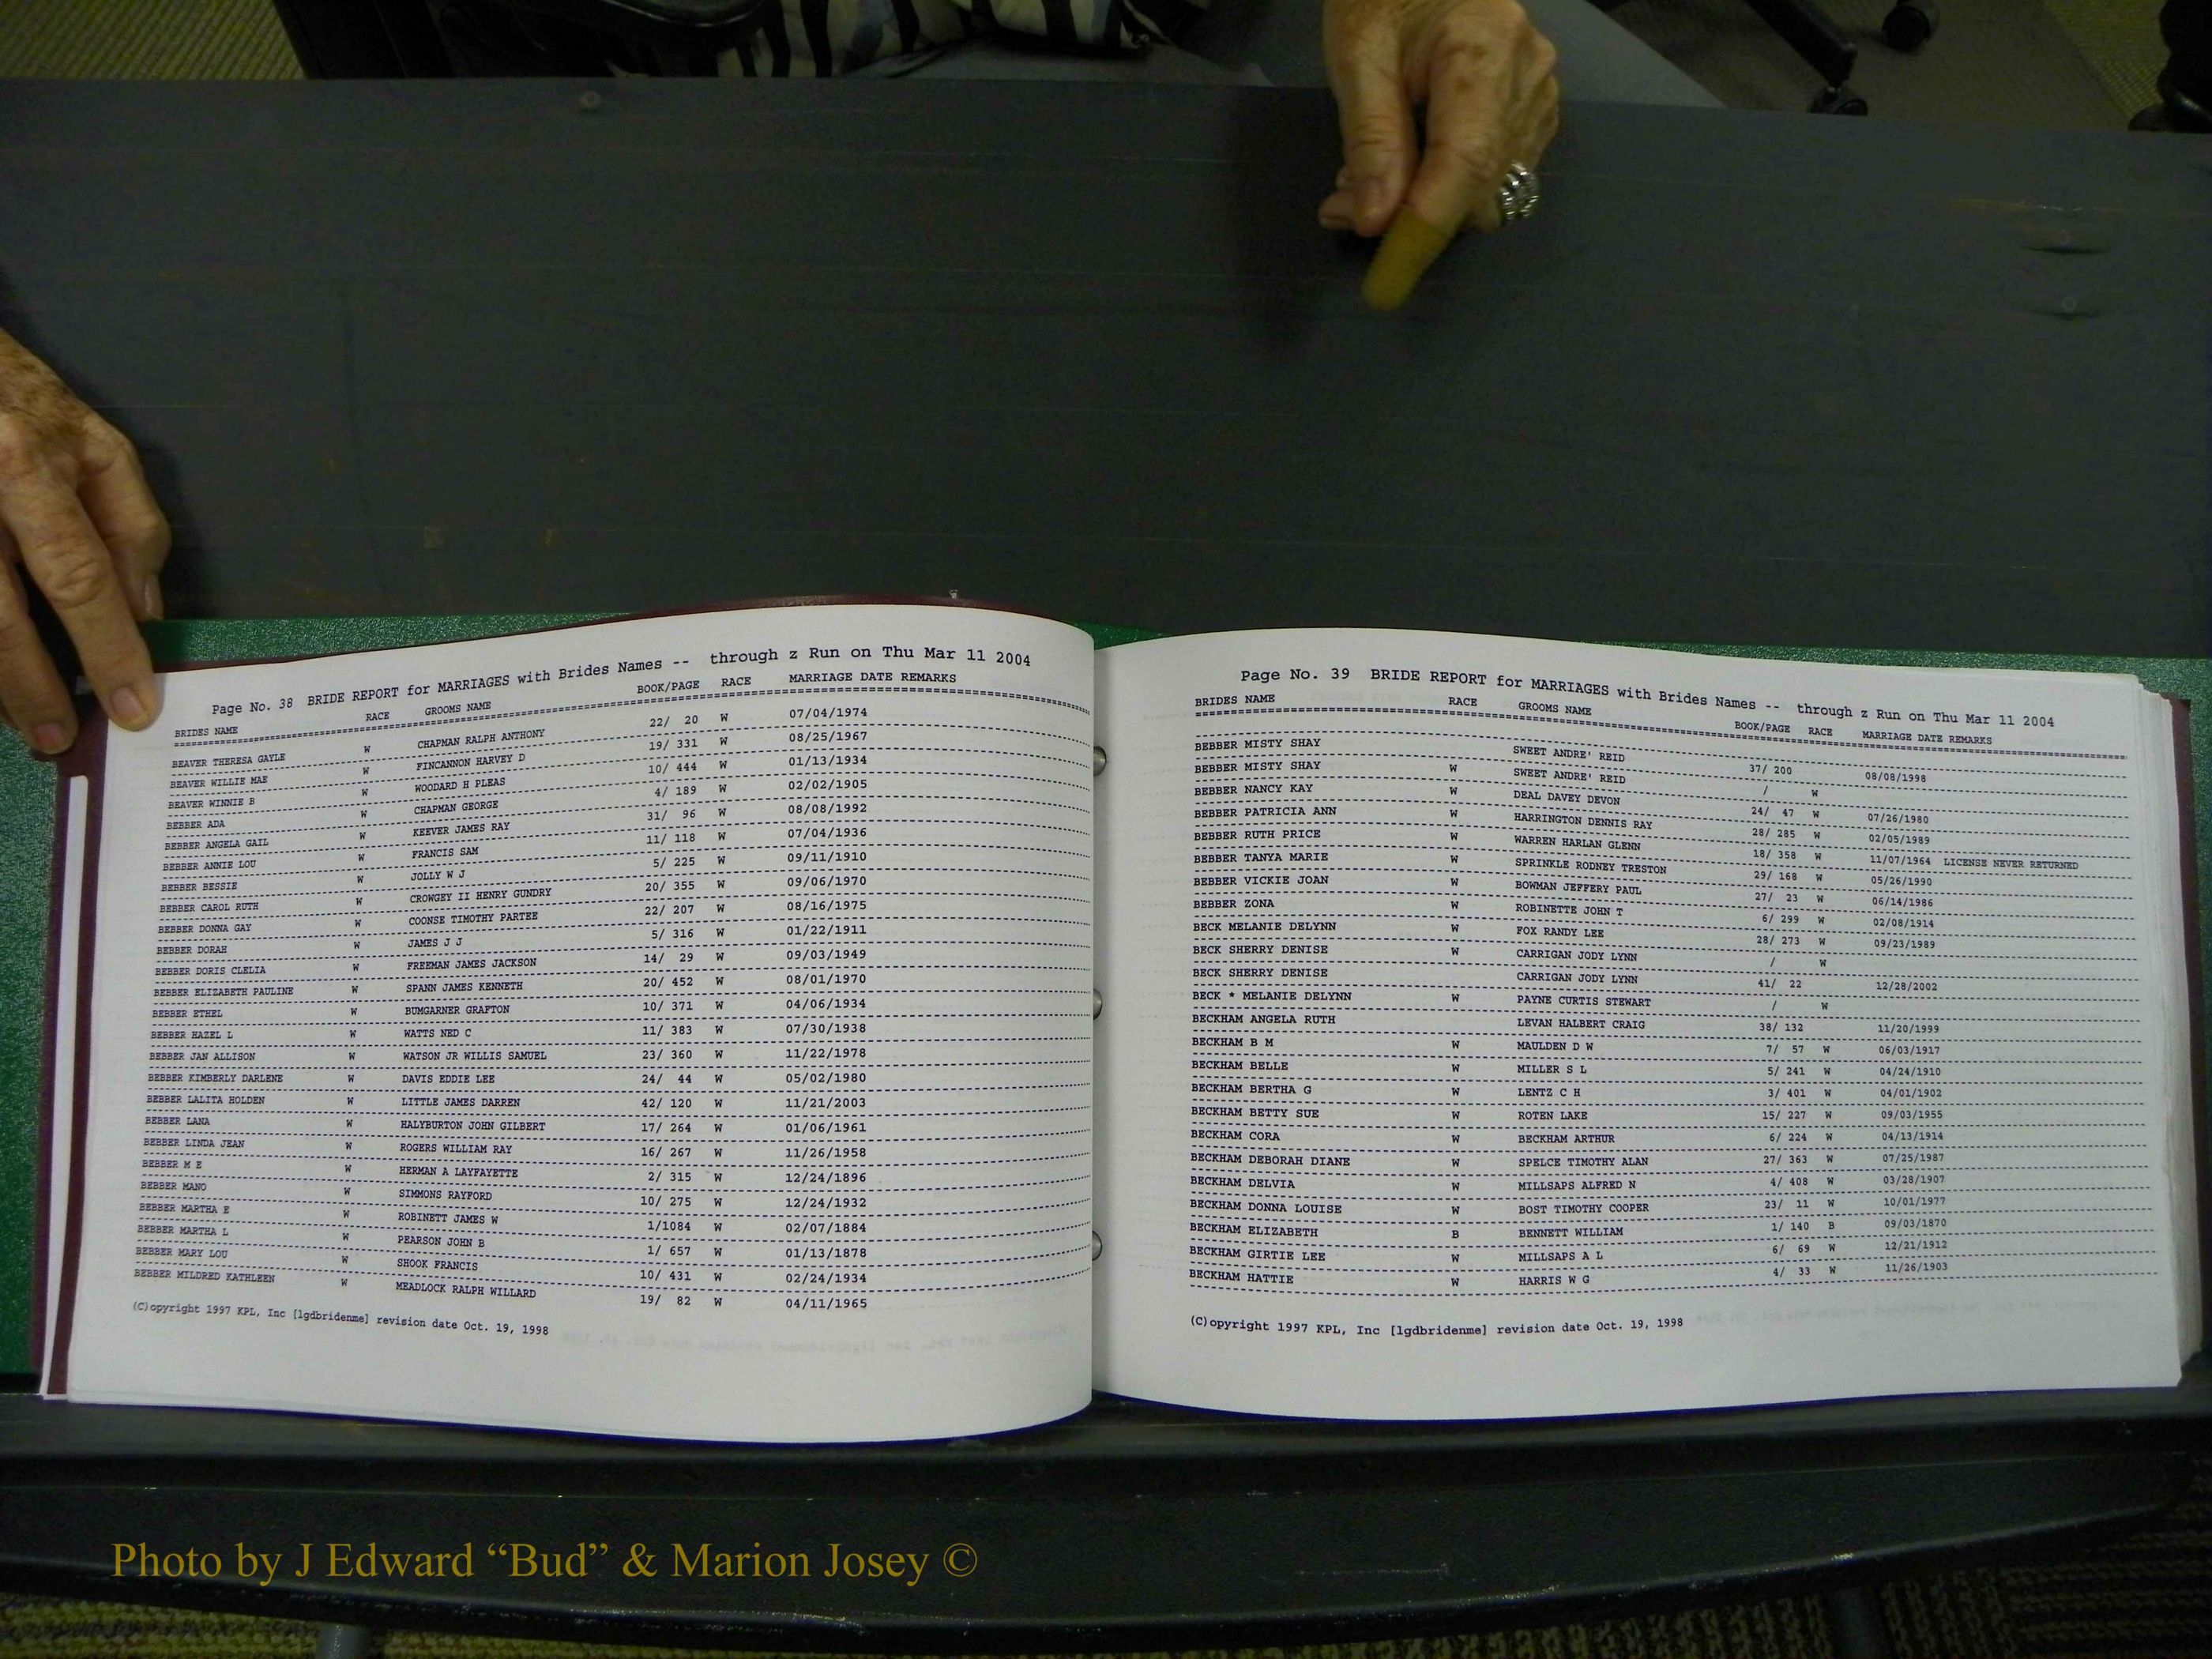 Page No. 38 BRIDE REPORT for MARRIAGES with Brides Names -- through z Run on Thu Mar 11 2004
BRIDES NAME RACE GROOMS NAME BOOK/PAGE RACE MARRIAGE DATE REMARKS
BEAVER THERESA GAYLE W CHAPMAN RALPH ANTHONY 22/ 20 W 07/04/1974
BEAVER WILLIE MAE W FINCANNON HARVEY D 19/ 331 W 08/25/1967
BEAVER WINNIE B W WOODARD H PLEAS 10/ 444 W 01/13/1934
BEBBER ADA W CHAPMAN GEORGE 4/ 189 W 02/02/1905
BEBBER ANGELA GAIL W KEEVER JAMES RAY 31/ 96 W 08/08/1992
BEBBER ANNIE LOU W FRANCIS SAM 11/ 118 W 07/04/1936
BEBBER BESSIE W JOLLY W J 5/ 225 W 09/11/1910
BEBBER CAROL RUTH W CROWGEY II HENRY GUNDRY 20/ 355 W 09/06/1970
BEBBER DONNA GAY W COONSE TIMOTHY PARTEE 22/ 207 W 08/16/1975
BEBBER DORAH W JAMES J J 5/ 316 W 01/22/1911
BEBBER DORIS CLELIA W FREEMAN JAMES JACKSON 14/ 29 W 09/03/1949
BEBBER ELIZABETH PAULINE W SPANN JAMES KENNETH 20/ 452 W 08/01/1970
BEBBER ETHEL W BUMGARNER GRAFTON 10/ 371 W 04/06/1934
BEBBER HAZEL L W WATTS NED C 11/ 383 W 07/30/1938
BEBBER JAN ALLISON W WATSON JR WILLIS SAMUEL 23/ 360 W 11/22/1978
BEBBER KIMBERLY DARLENE W DAVIS EDDIE LEE 24/ 44 W 05/02/1980
BEBBER LALITA HOLDEN W LITTLE JAMES DARREN 42/ 120 W 11/21/2003
BEBBER LANA W HALYBURTON JOHN GILBERT 17/ 264 W 01/06/1961
BEBBER LINDA JEAN W ROGERS WILLIAM RAY 16/ 267 W 11/26/1958
BEBBER M E W HERMAN A LAYFAYETTE 2/ 315 W 12/24/1896
BEBBER MANO W SIMMONS RAYFORD 10/ 275 W 12/24/1932
BEBBER MARTHA E W ROBINETT JAMES W 1/1084 W 02/07/1884
BEBBER MARTHA L W PEARSON JOHN B 1/ 657 W 01/13/1878
BEBBER MARY LOU W SHOOK FRANCIS 10/ 431 W 02/24/1934
BEBBER MILDRED KATHLEEN W MEADLOCK RALPH WILLARD 19/ 82 W 04/11/1965
(C)opyright 1997 KPL, Inc [lgdbridenme] revision date Oct. 19, 1998
Page No. 39 BRIDE REPORT for MARRIAGES with Brides Names -- through z Run on Thu Mar 11 2004
BRIDES NAME RACE GROOMS NAME BOOK/PAGE RACE MARRIAGE DATE REMARKS
BEBBER MISTY SHAY SWEET ANDRE' REID 37/ 200 08/08/1998
BEBBER MISTY SHAY W SWEET ANDRE' REID / W
BEBBER NANCY KAY W DEAL DAVEY DEVON 24/ 47 W 07/26/1980
BEBBER PATRICIA ANN W HARRINGTON DENNIS RAY 28/ 285 W 02/05/1989
BEBBER RUTH PRICE W WARREN HARLAN GLENN 18/ 358 W 11/07/1964 LICENSE NEVER RETURNED
BEBBER TANYA MARIE W SPRINKLE RODNEY TRESTON 29/ 168 W 05/26/1990
BEBBER VICKIE JOAN W BOWMAN JEFFERY PAUL 27/ 23 W 06/14/1986
BEBBER ZONA W ROBINETTE JOHN T 6/ 299 W 02/08/1914
BECK MELANIE DELYNN W FOX RANDY LEE 28/ 273 W 09/23/1989
BECK SHERRY DENISE W CARRIGAN JODY LYNN / W
BECK SHERRY DENISE CARRIGAN JODY LYNN 41/ 22 12/28/2002
BECK * MELANIE DELYNN W PAYNE CURTIS STEWART / W
BECKHAM ANGELA RUTH LEVAN HALBERT CRAIG 38/ 132 11/20/1999
BECKHAM B M W MAULDEN D W 7/ 57 W 06/03/1917
BECKHAM BELLE W MILLER S L 5/ 241 W 04/24/1910
BECKHAM BERTHA G W LENTZ C H 3/ 401 W 04/01/1902
BECKHAM BETTY SUE W ROTEN LAKE 15/ 227 W 09/03/1955
BECKHAM CORA W BECKHAM ARTHUR 6/ 224 W 04/13/1914
BECKHAM DEBORAH DIANE W SPELCE TIMOTHY ALAN 27/ 363 W 07/25/1987
BECKHAM DELVIA W MILLSAPS ALFRED N 4/ 408 W 03/28/1907
BECKHAM DONNA LOUISE W BOST TIMOTHY COOPER 23/ 11 W 10/01/1977
BECKHAM ELIZABETH B BENNETT WILLIAM 1/ 140 B 09/03/1870
BECKHAM GIRTIE LEE W MILLSAPS A L 6/ 69 W 12/21/1912
BECKHAM HATTIE W HARRIS W G 4/ 33 W 11/26/1903
(C)opyright 1997 KPL, Inc [lgdbridenme] revision date Oct. 19, 1998
Photo by J Edward “Bud” & Marion Josey ©